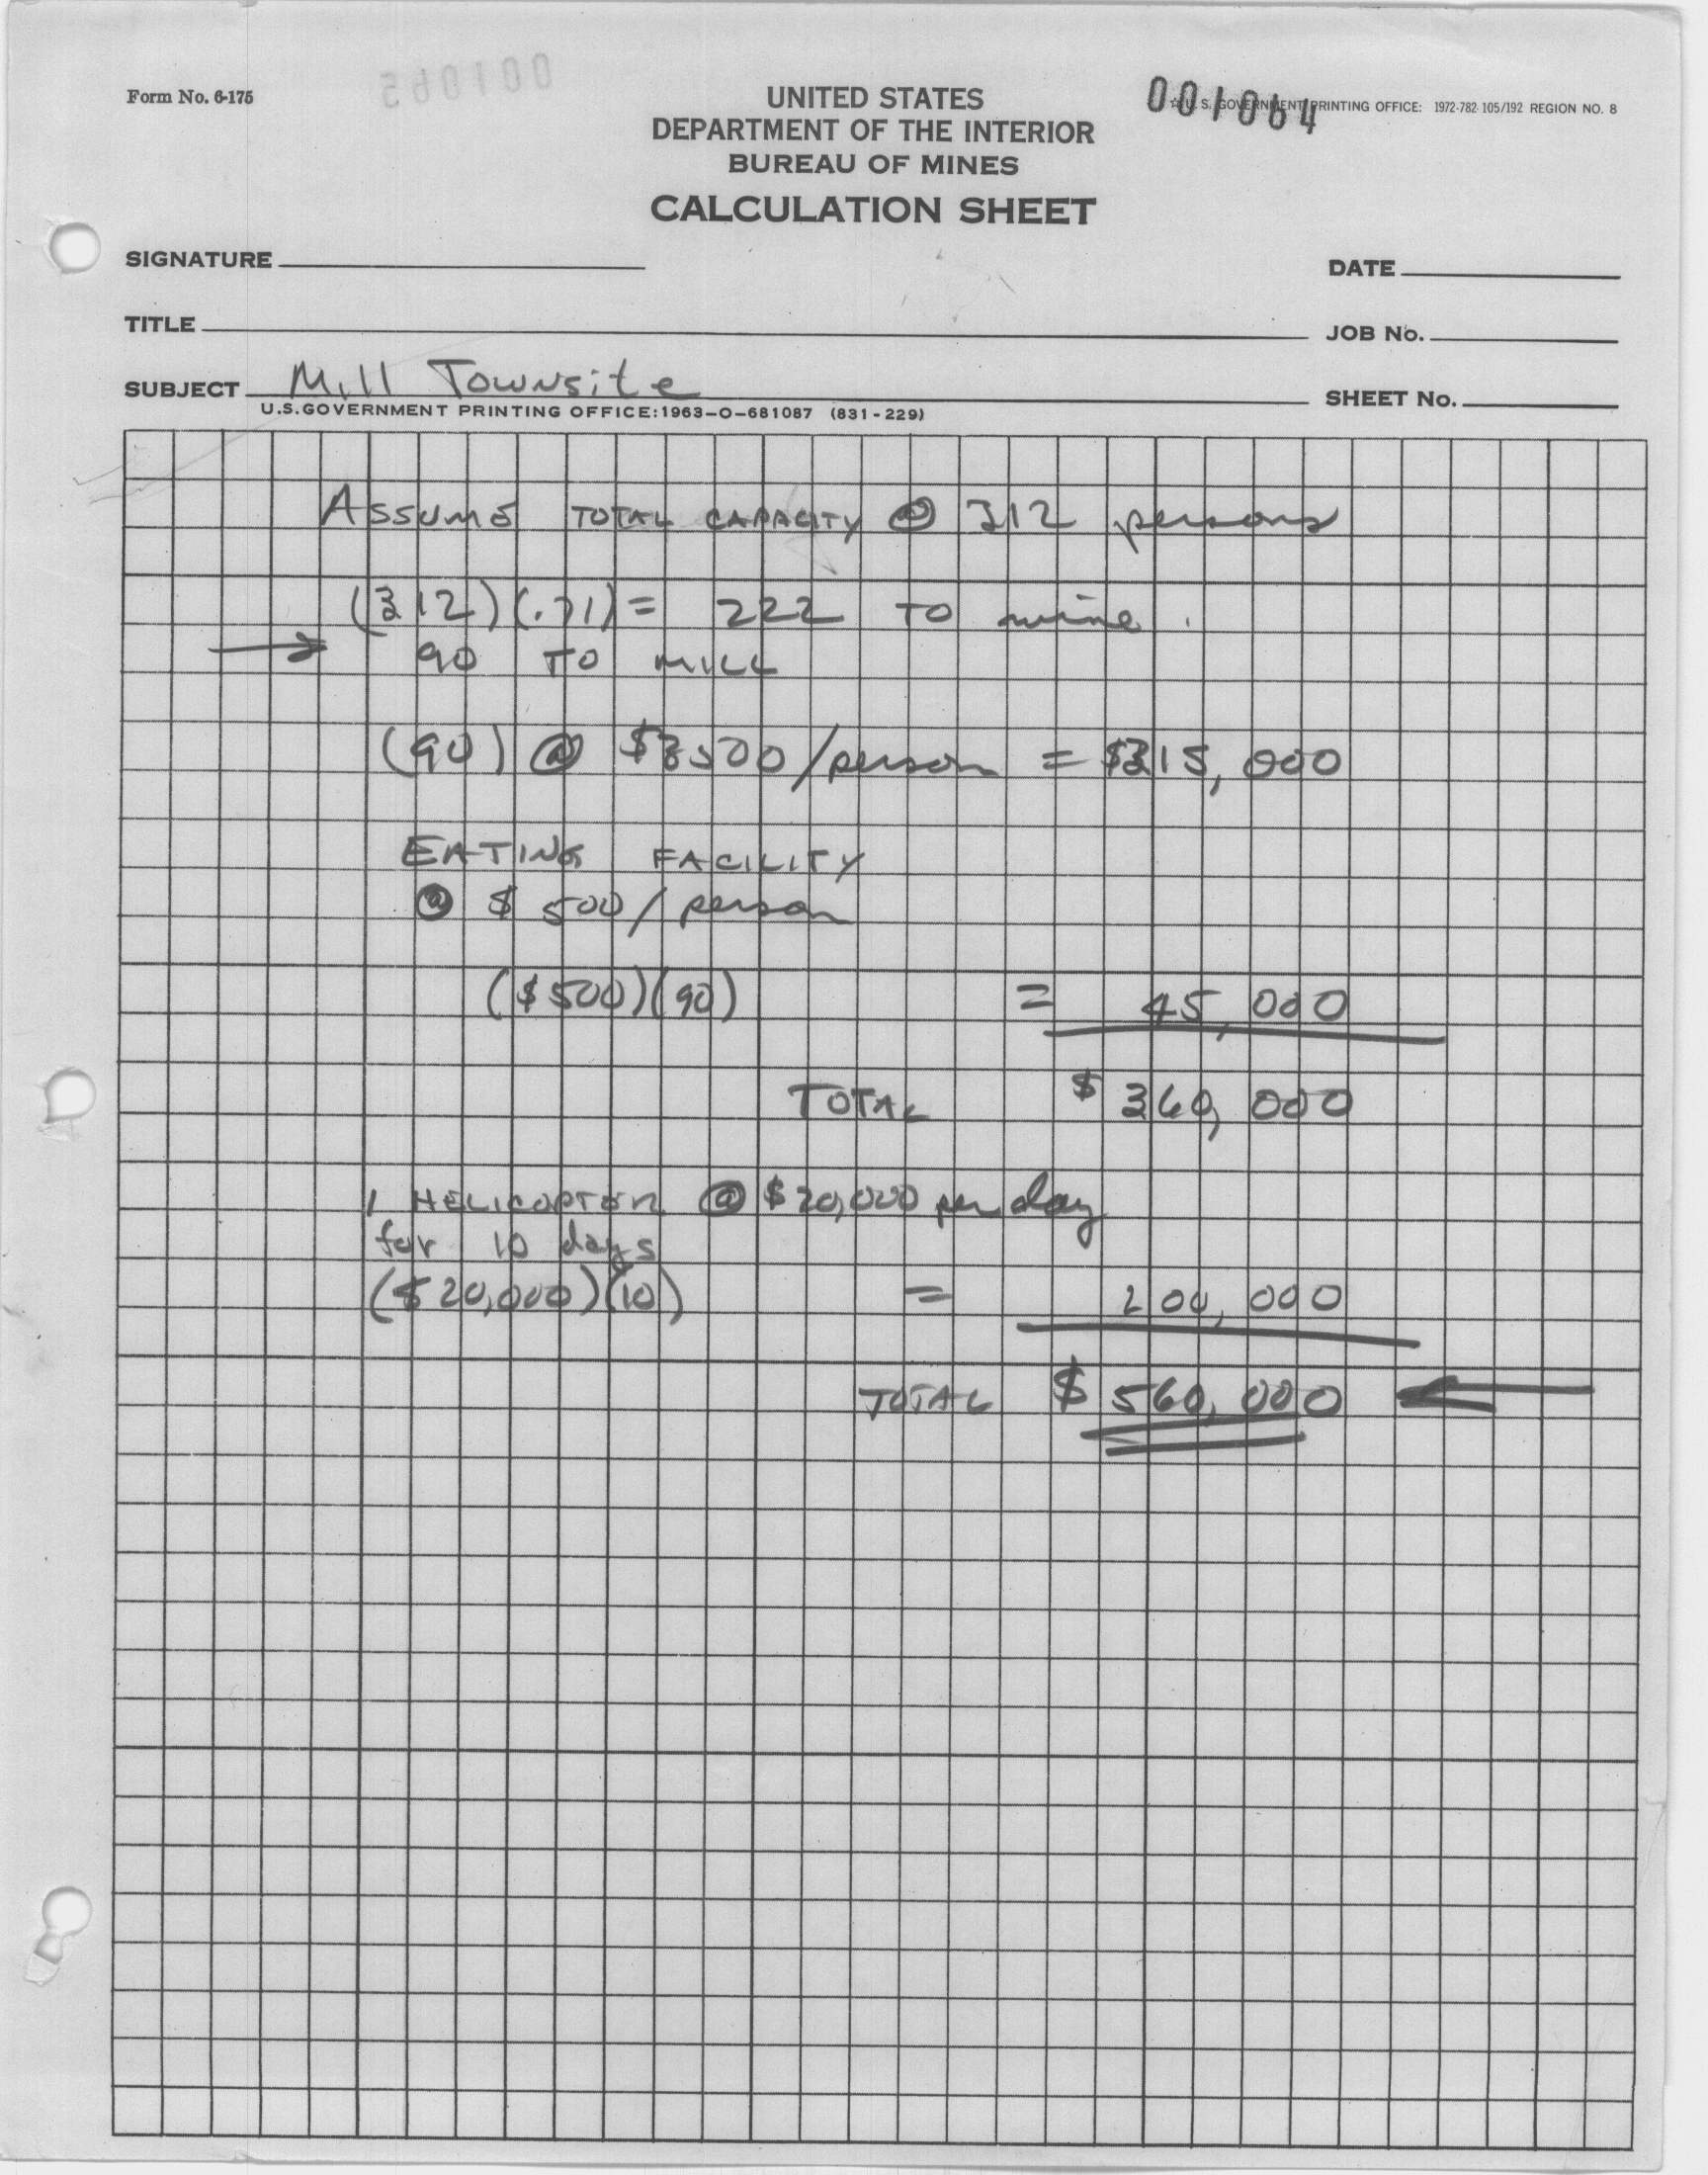 001065
Form No. 6-175
001064
☆ U. S. GOVERNMENT PRINTING OFFICE: 1972-782-105/192 REGION NO. 8
UNITED STATES
DEPARTMENT OF THE INTERIOR
BUREAU OF MINES
CALCULATION SHEET
SIGNATURE
DATE
TITLE
JOB No.
SUBJECT Mill Townsite
SHEET No.
U.S.GOVERNMENT PRINTING OFFICE:1963-O-681087 (831-229)
ASSUME TOTAL CAPACITY @ 312 persons
(312)(.71) = 222 TO mine.
→ 90 TO MILL
(90) @ $3500/person = $315,000
EATING FACILITY
@ $500/person
($500)(90) = 45,000
TOTAL $360,000
1 HELICOPTER @ $20,000 per day
for 10 days
($20,000)(10) = 200,000
TOTAL $560,000 ←